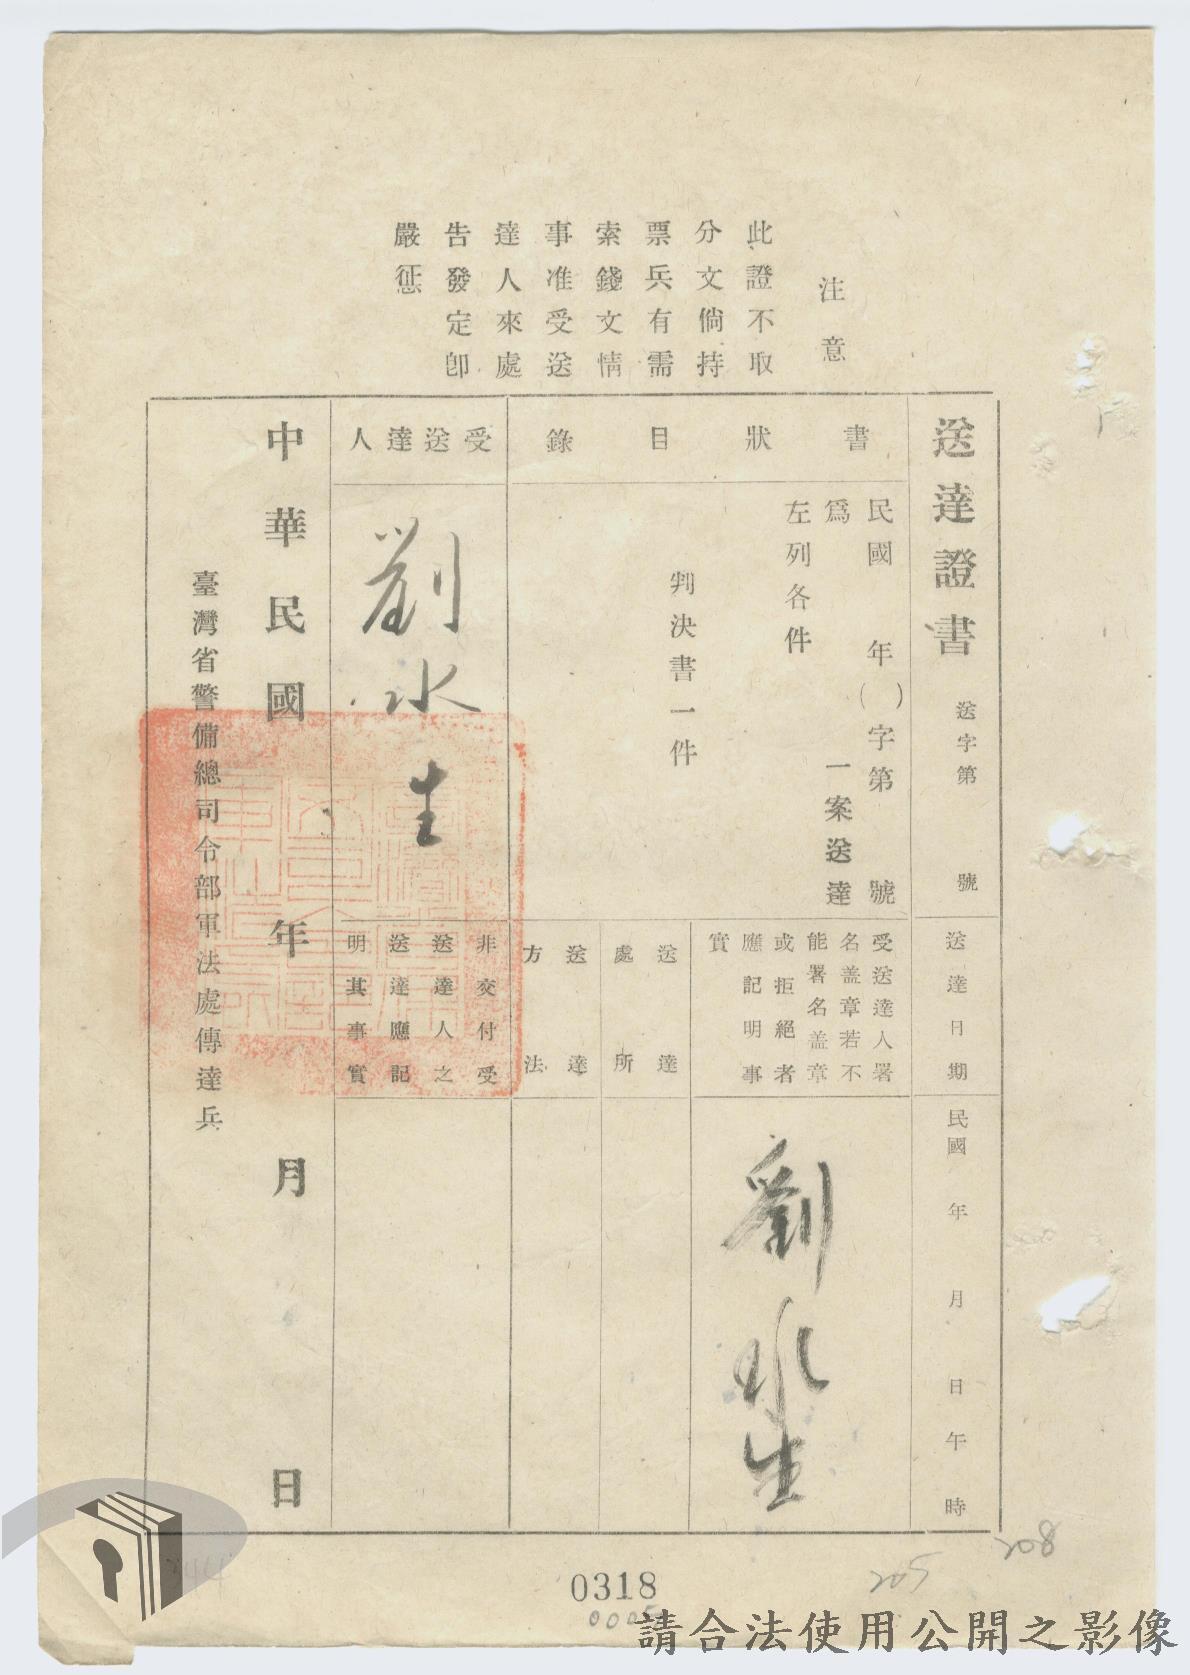 注意
此證不取
分文倘持
票兵有需
索錢文情
事准受送
達人來處
告發定即
嚴懲
送達證書
送字第 號
送達日期
民國 年 月 日 午 時
書狀目錄
民國 年( )字第 號
為 一案送達
左列各件
判決書一件
受送達人署
名蓋章若不
能署名蓋章
或拒絕者
應記明事
實
劉水生
送達
處所
送達
方法
受送達人
劉水生
非交付受
送達人之
送達應記
明其事實
中華民國 年 月 日
臺灣省警備總司令部軍法處傳達兵
208
205
0318
請合法使用公開之影像